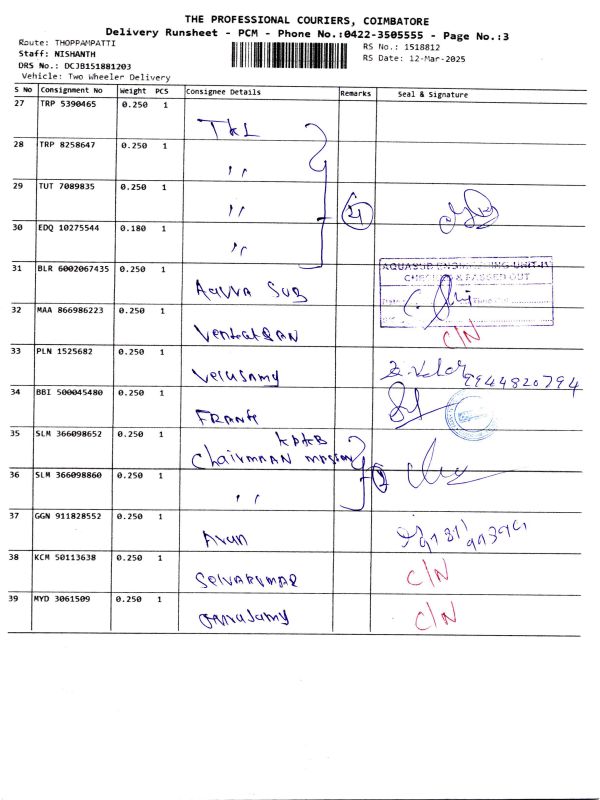 THE PROFESSIONAL COURIERS, COIMBATORE
Delivery Runsheet - PCM - Phone No.:0422-3505555 - Page No.:3
Route: THOPPAMPATTI
Staff: NISHANTH
DRS No.: DCJB151881203
Vehicle: Two Wheeler Delivery
RS No.: 1518812
RS Date: 12-Mar-2025
S No Consignment No Weight PCS Consignee Details Remarks Seal & Signature
27 TRP 5390465 0.250 1 TKL
28 TRP 8258647 0.250 1 ''
29 TUT 7089835 0.250 1 ''
30 EDQ 10275544 0.180 1 ''
31 BLR 6002067435 0.250 1 Aqvva SUB
AQUASUB ENGINEERING UNIT-IV
CHECKED & PASSED OUT
32 MAA 866986223 0.250 1 C/N
33 PLN 1525682 0.250 1 Velusamy 9944820794
34 BBI 500045480 0.250 1
35 SLM 366098652 0.250 1 Chairmaan
36 SLM 366098860 0.250 1 ''
37 GGN 911828552 0.250 1 Arun
38 KCM 50113638 0.250 1 Selvakumar C/N
39 MYD 3061509 0.250 1 C/N